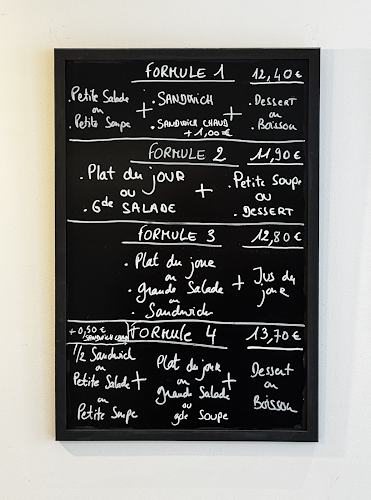 FORMULE 1 12,40€
. Petite Salade + . SANDWICH + . DESSERT
ou . SANDWICH CHAUD ou
. Petite Soupe + 1,00€ . Boisson
FORMULE 2 11,90€
. Plat du JOUR + . Petite Soupe
ou ou
. Gde SALADE . DESSERT
FORMULE 3 12,80€
. Plat du jour
ou
. grande Salade + Jus du
ou jour
. Sandwich
+0,50€
/SANDWICH CHAUD FORMule 4 13,70€
1/2 Sandwich Plat du jour Dessert
ou ou ou
Petite Salade + grande Salade + Boisson
ou ou
Petite Soupe gde Soupe